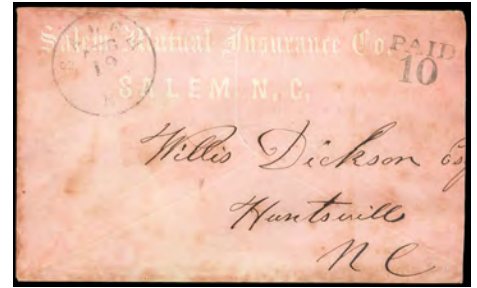 Salem Mutual Insurance Co.
SALEM N.C.
PAID
10
19
Willis Dickson Esq
Huntsville
N C